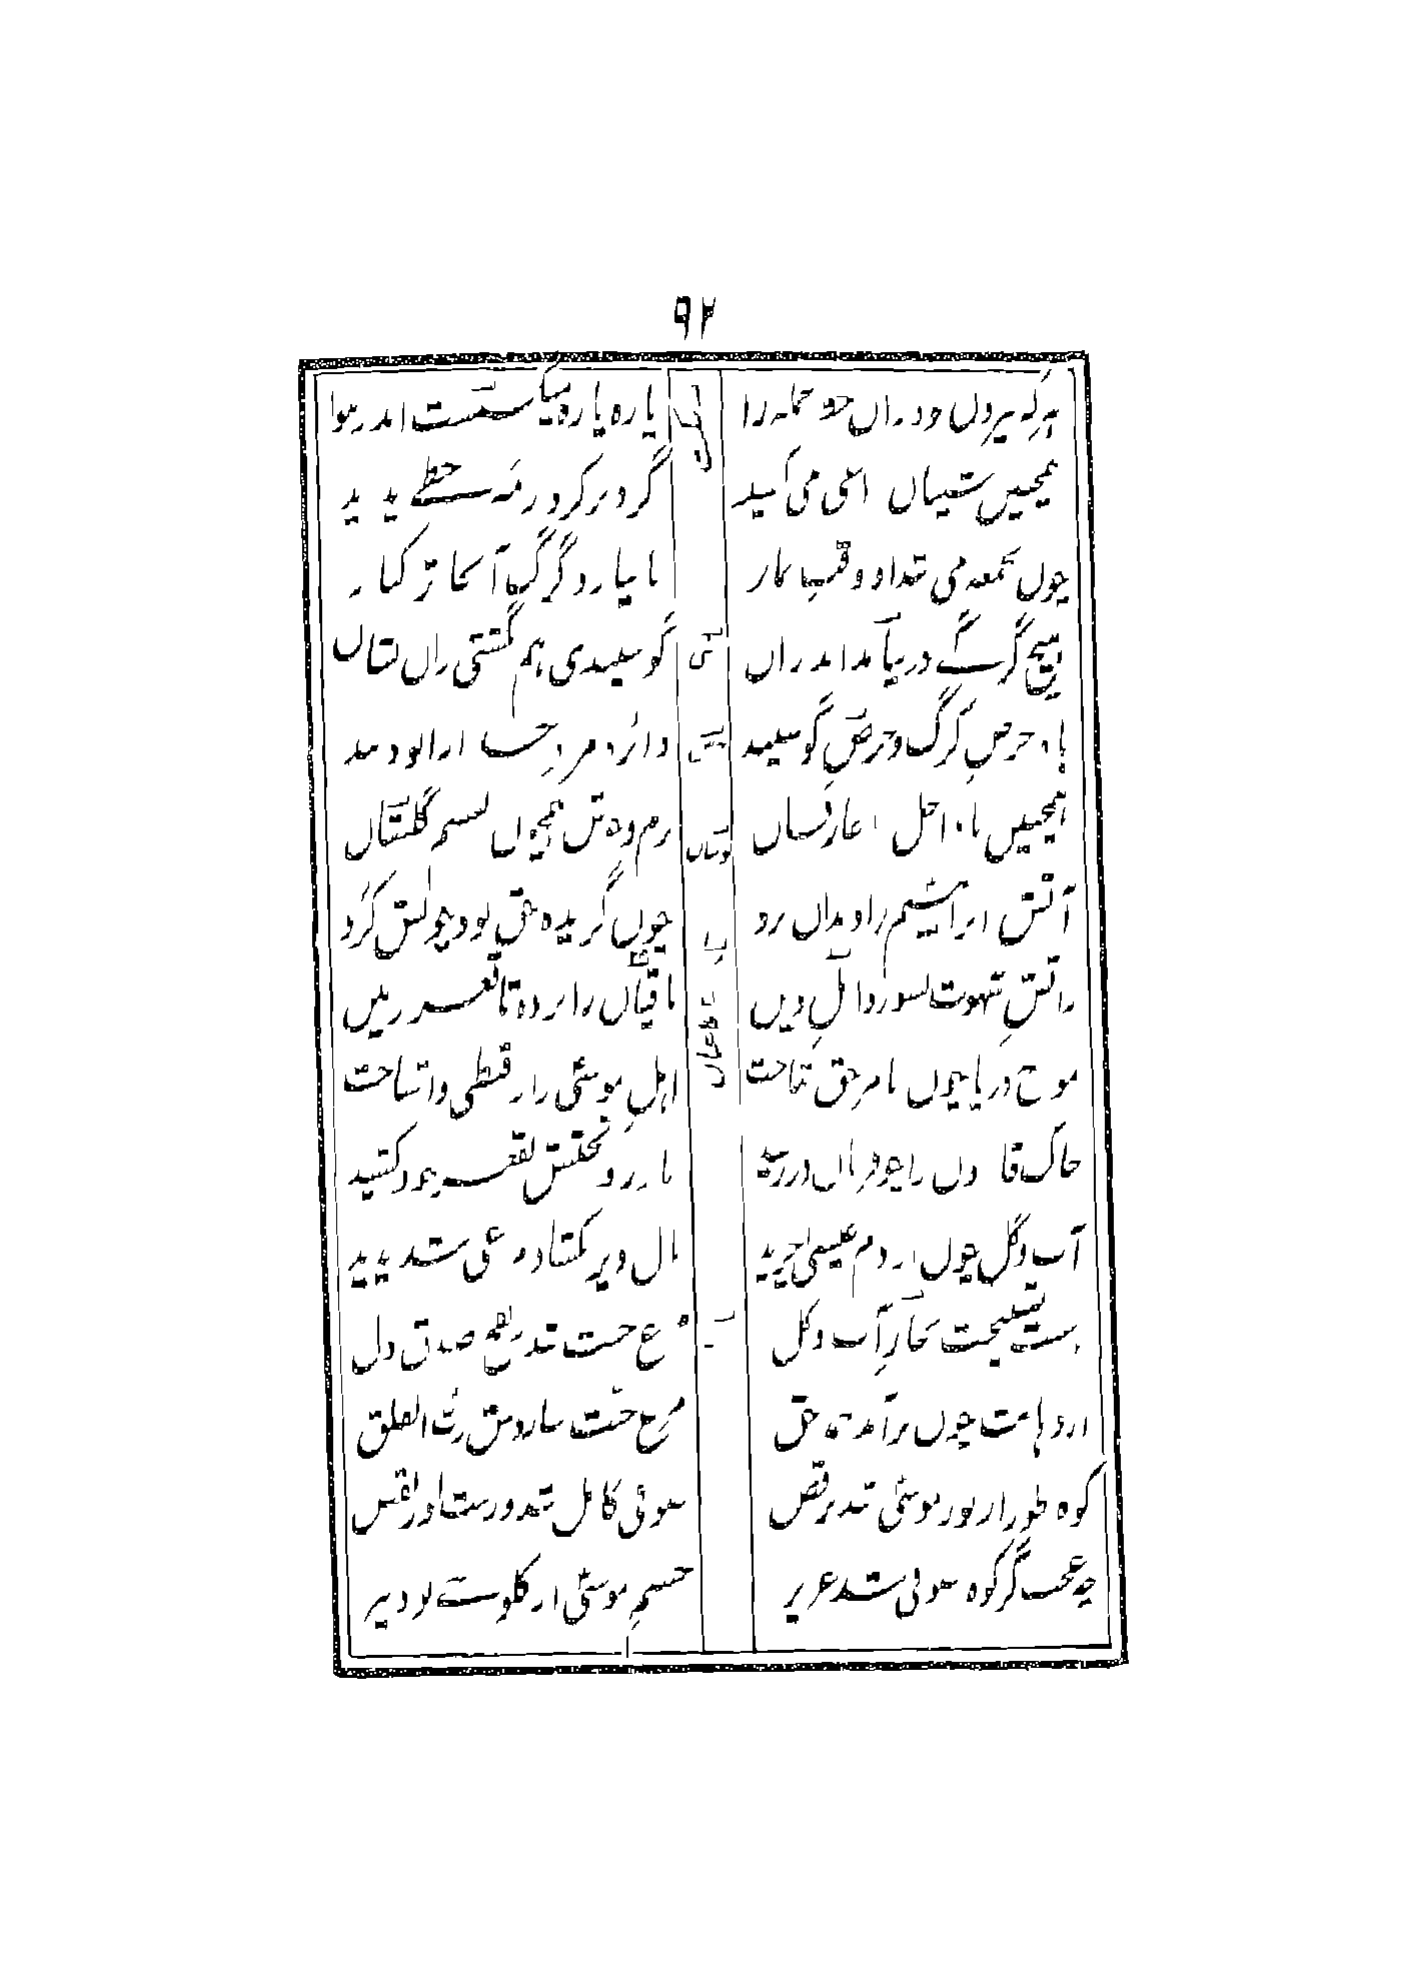 ۹۲
ہرکہ بیروں بود زاں خط جملہ را پارہ پارہ میگسست اندر ہوا
ہمچنیں شیباں راعی می کشید گرد بر گرد رمہ خطے پدید
چوں بجمعہ می شد او وقت نماز تا نیارد گرگ آنجا ترکتاز
ہیچ گرگے در نیامد اندراں گوسپندی ہم نگشتی زاں نشاں
باد حرص گرگ و حرص گوسپند دائرہ مرد خدا را بود بند
ہمچنیں باد اجل با عارفاں نرم و خوش ہمچوں نسیم گلستاں
آتش ابراہیم را دنداں نزد چوں گزیدہ حق بود چونش گزد
زآتش شہوت نسوزد اہل دیں باقیاں را بردہ تا قعر زمیں
موج دریا چوں بامر حق بتاخت اہل موسیٰ را ز قبطی وا شناخت
خاک قاروں را چو فرماں در رسید با زر و تختش بقعر خود کشید
آب و گل چوں از دم عیسیٰ چرید بال و پر بکشاد مرغی شد پدید
ہست تسبیحت بخار آب و گل مرغ جنت شد ز نفخ صدق دل
از دہانت چوں برآمد حمد حق مرغ جنت سازدش رب الفلق
کوہ طور از نور موسیٰ شد برقص صوفی کامل شد و رست او ز نقص
چہ عجب گر کوہ صوفی شد عزیز جسم موسیٰ از کلوخے بود نیز